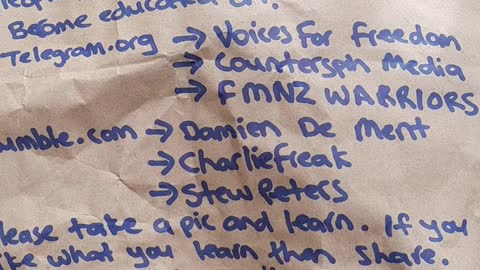 Become educated on:
Telegram.org → Voices for freedom
→ Counterspn Media
→ FMNZ WARRIORS
umble.com → Damien De Ment
→ Charliefreak
→ Stew Peters
lease take a pic and learn. If you
ke what you learn then share.